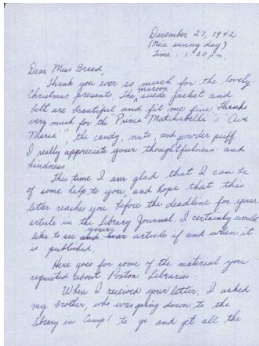 December 27, 1942
(Nice sunny day)
Time: 1:30 p.m.
Dear Miss Breed,
Thank you ever so much for the lovely
Christmas presents. The maroon suede jacket and
belt are beautiful and fit me fine. Thanks
very much for the "Prince Matchabelli's "Ave
Maria", the candy, nuts, and powder puff
I really appreciate your thoughtfulness and
kindness.
This time I am glad that I can be
of some help to you and hope that this
letter reaches you before the deadline for your
article in the Library Journal. I certainly would
like to see your article if and when it
is published.
Here goes for some of the material you
requested about Poston Libraries
When I received your letter, I asked
my brother, who was going down to the
library in Camp I to go and get all the